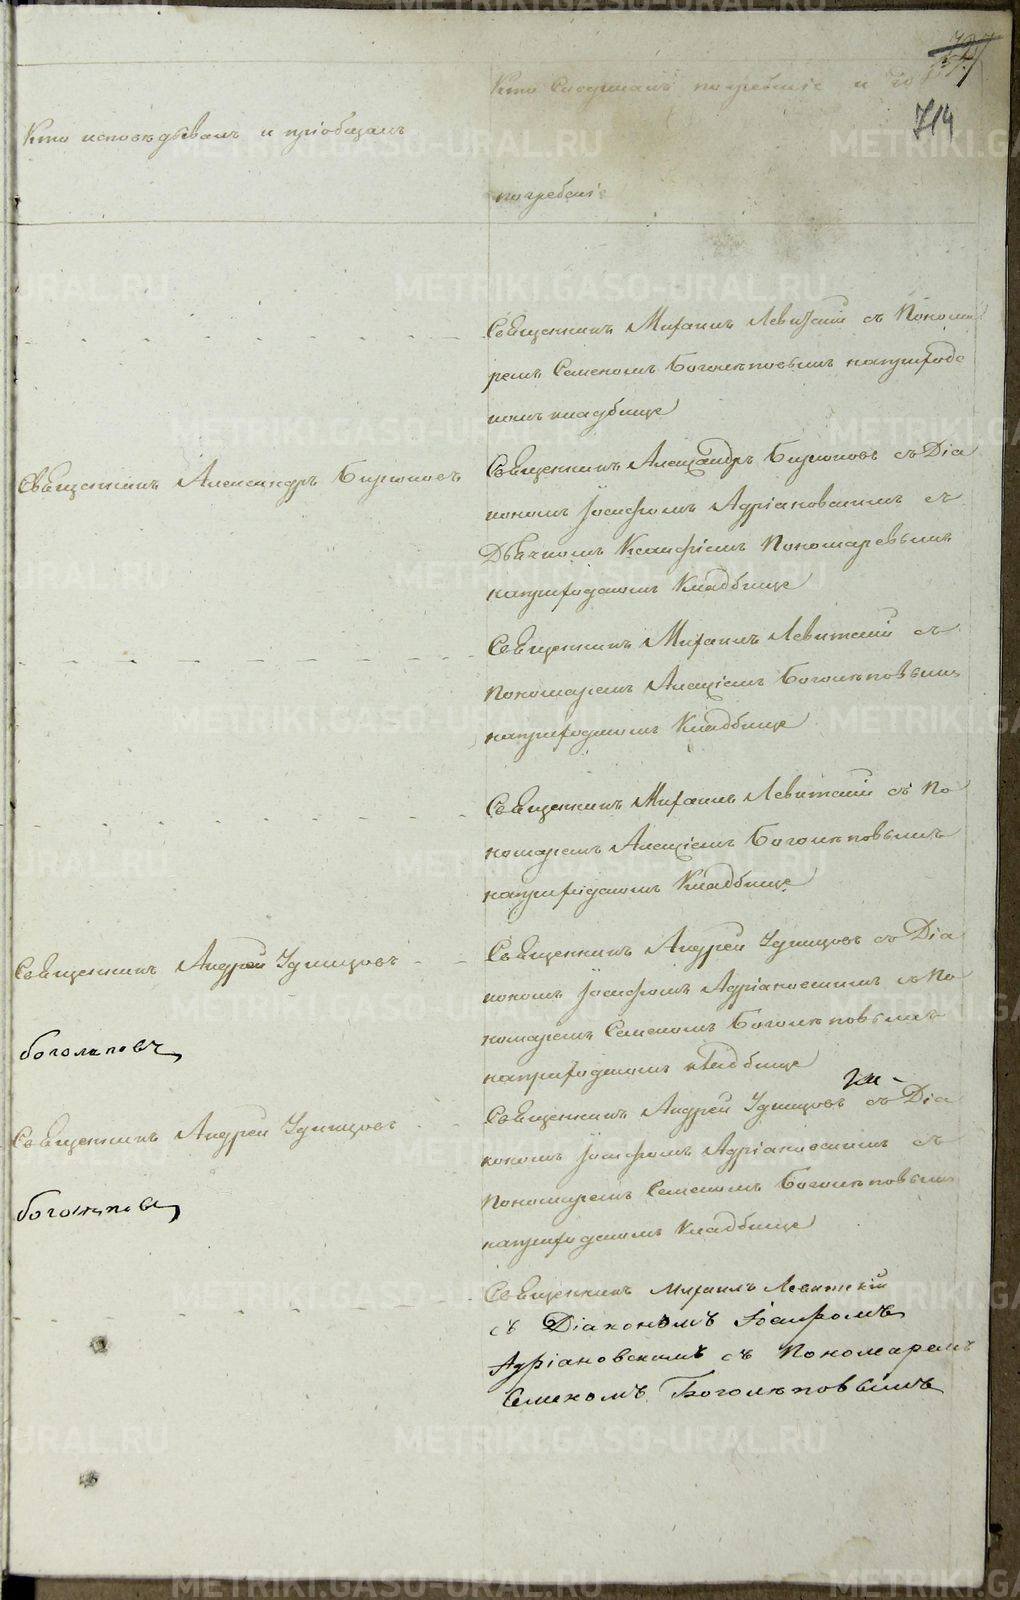 714
Кто исповѣдывалъ и пріобщалъ
Кто Совершалъ погребеніе и
погребені
Священникъ Михаилъ Левитскій съ Понома
ремъ Семеномъ Боголѣповымъ наприход
номъ кладбище
Священникъ Александръ Бирюковъ
Священникъ Александръ Бирюковъ съ Діа
кономъ Іосифомъ Адріановскимъ съ
Дьячкомъ Пономаревымъ
наприходскомъ Кладбище
Священникъ Михаилъ Левитскій съ
Пономаремъ Алексіемъ Боголѣповымъ
наприходскомъ Кладбище
Священникъ Михаилъ Левитскій съ По
номаремъ Алексіемъ Боголѣповымъ
наприходскомъ Кладбище
Священникъ Андрей Удинцовъ
Боголѣповъ
Священникъ Андрей Удинцовъ съ Діа
кономъ Іосифомъ Адріановскимъ съ По
номаремъ Семеномъ Боголѣповымъ
наприходскомъ кладбище
Священникъ Андрей Удинцовъ
Боголѣповъ
Священникъ Андрей Удинцовъ съ Діа
кономъ Іосифомъ Адріановскимъ съ
Пономаремъ Семеномъ Боголѣповымъ
наприходскомъ Кладбище
Священникъ Михаилъ Левитскій
съ Діакономъ Іосифомъ
Адріановскимъ съ Пономаремъ
Семеномъ Боголѣповымъ
METRIKI.GASO-URAL.RU